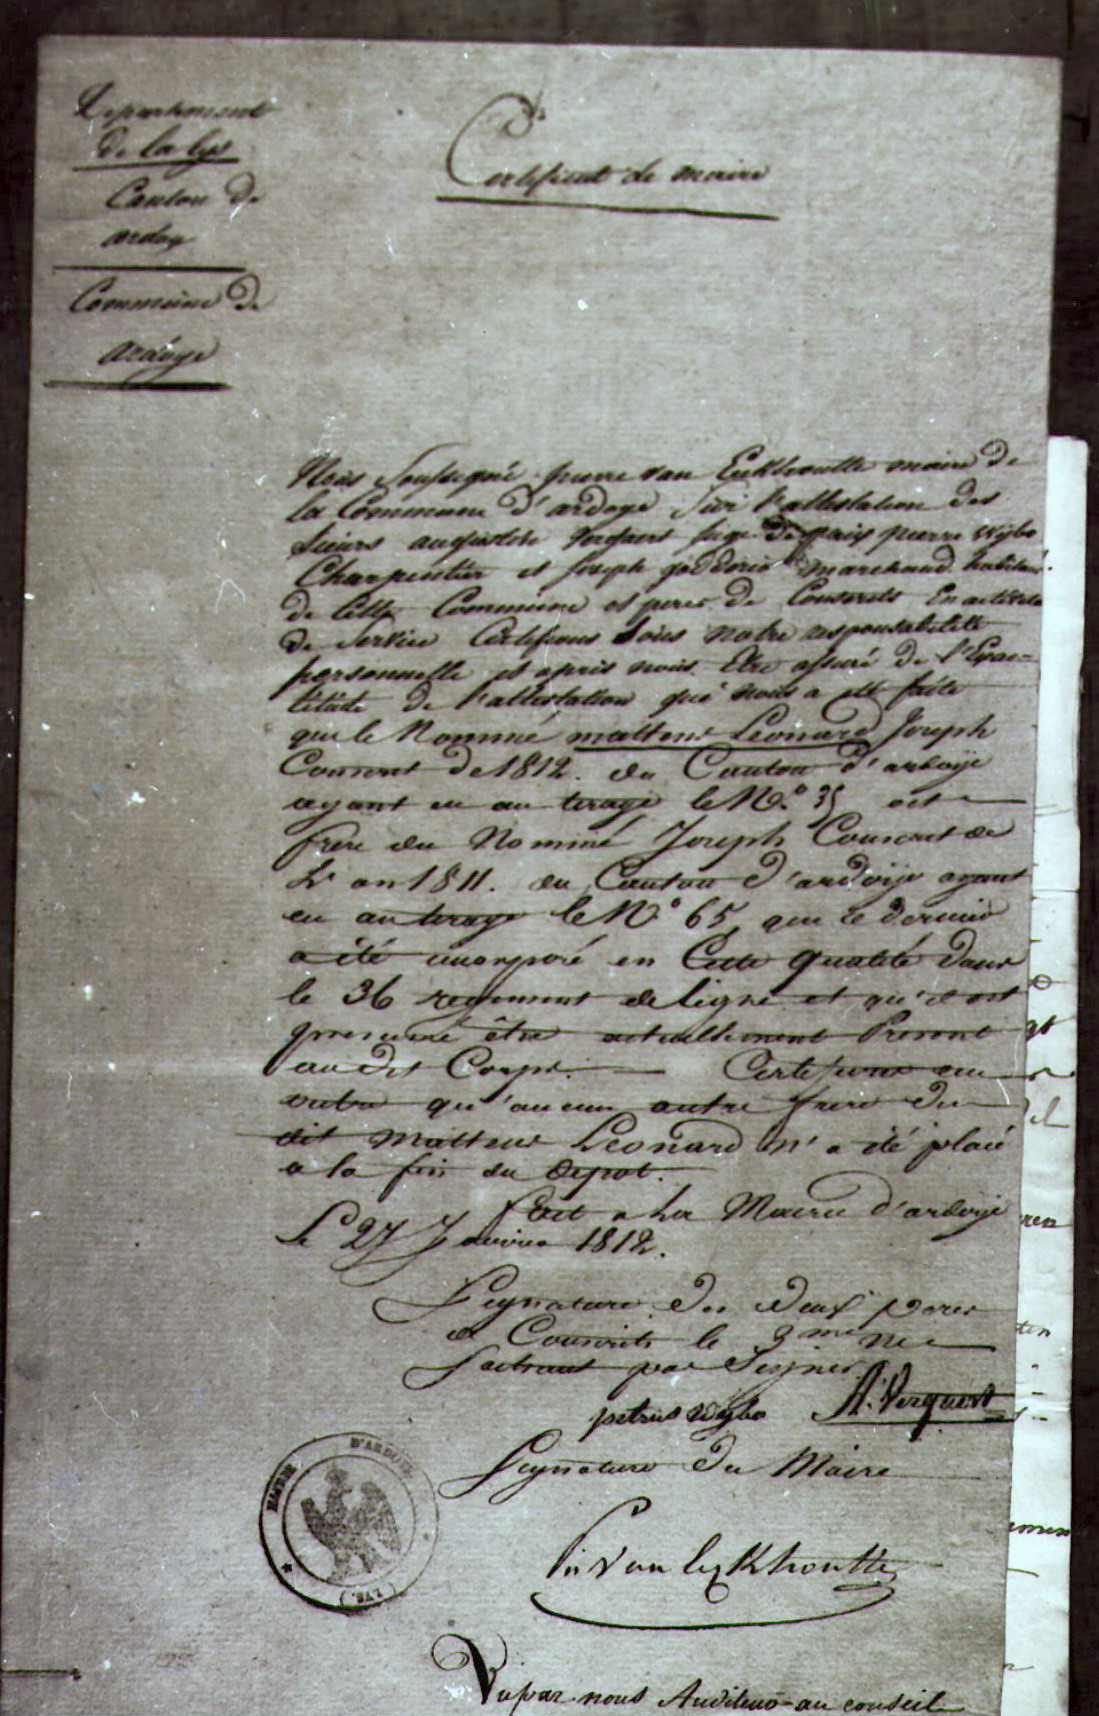 Departement
de la lys
Canton de
ardoy
Commune de
ardoye
Certificat de maire
Nous Soussigné pierre van Eeckhoutte maire de
la Commune d'ardoye Sur l'attestation des
Sieurs augustste juge de paix pierre wybo
Charpentier et joseph marchand habitans
de Cette Commune et peres de Conscrits En activité
de Service Certifions Sous notre responsabilité
personnelle et après nous Etre assuré de l'Exac-
titude de l'attestation qui nous a été faite
que le Nommé mattens Leonard Joseph
Conscrit de 1812. du Canton d'ardoije
ayant eu au tirage le No. 35 est
frere du Nommé Joseph Conscrit de
L'an 1811. du Canton d'ardoije ayant
eu au tirage le No 65, que ce dernier
a été incorporé en Cette qualité dans
le 36 regiment de ligne et qu'il est
presumé être actuellement Present
au dit Corps. Certifions en
outre qu'aucun autre frere du
dit Mattens Leonard n'a été placé
a la fin du depot.
Fait a La Mairie d'ardoije
Le 27 Janvier 1812.
Segnature des deux peres
de Conscrits le 3me ne
Sachant pas Seigner
petrus wybo A. Verquert
Segnature du Maire
Pr Van Eeckhoutte
MAIRIE D'ARDOYE
(LYS.)
Vu par nous Auditeur au conseil